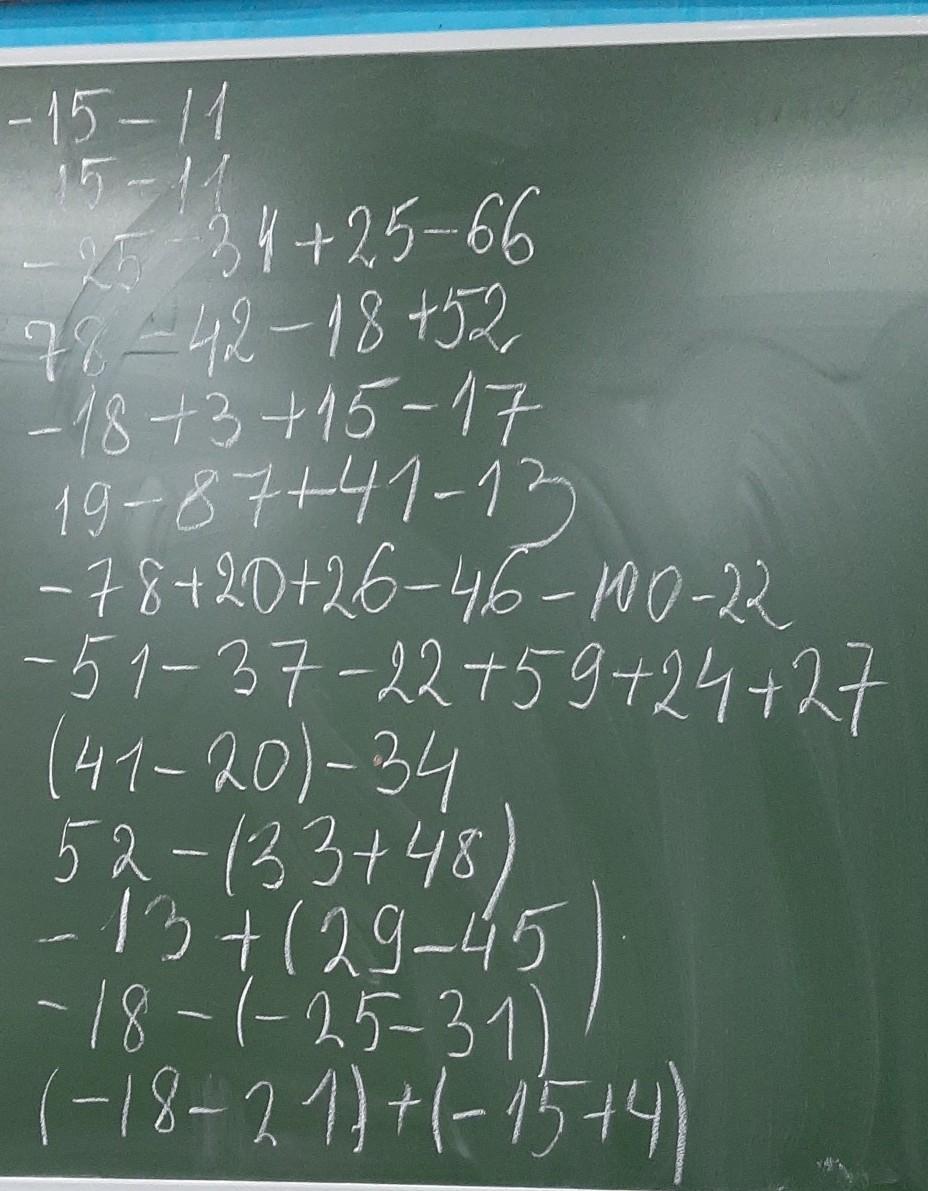 -15-11
15-11
-25-34+25-66
78-42-18+52
-18+3+15-17
19-87+41-13
-78+20+26-46-100-22
-51-37-22+59+24+27
(41-20)-34
52-(33+48)
-13+(29-45)
-18-(-25-31)
(-18-21)+(-15+4)